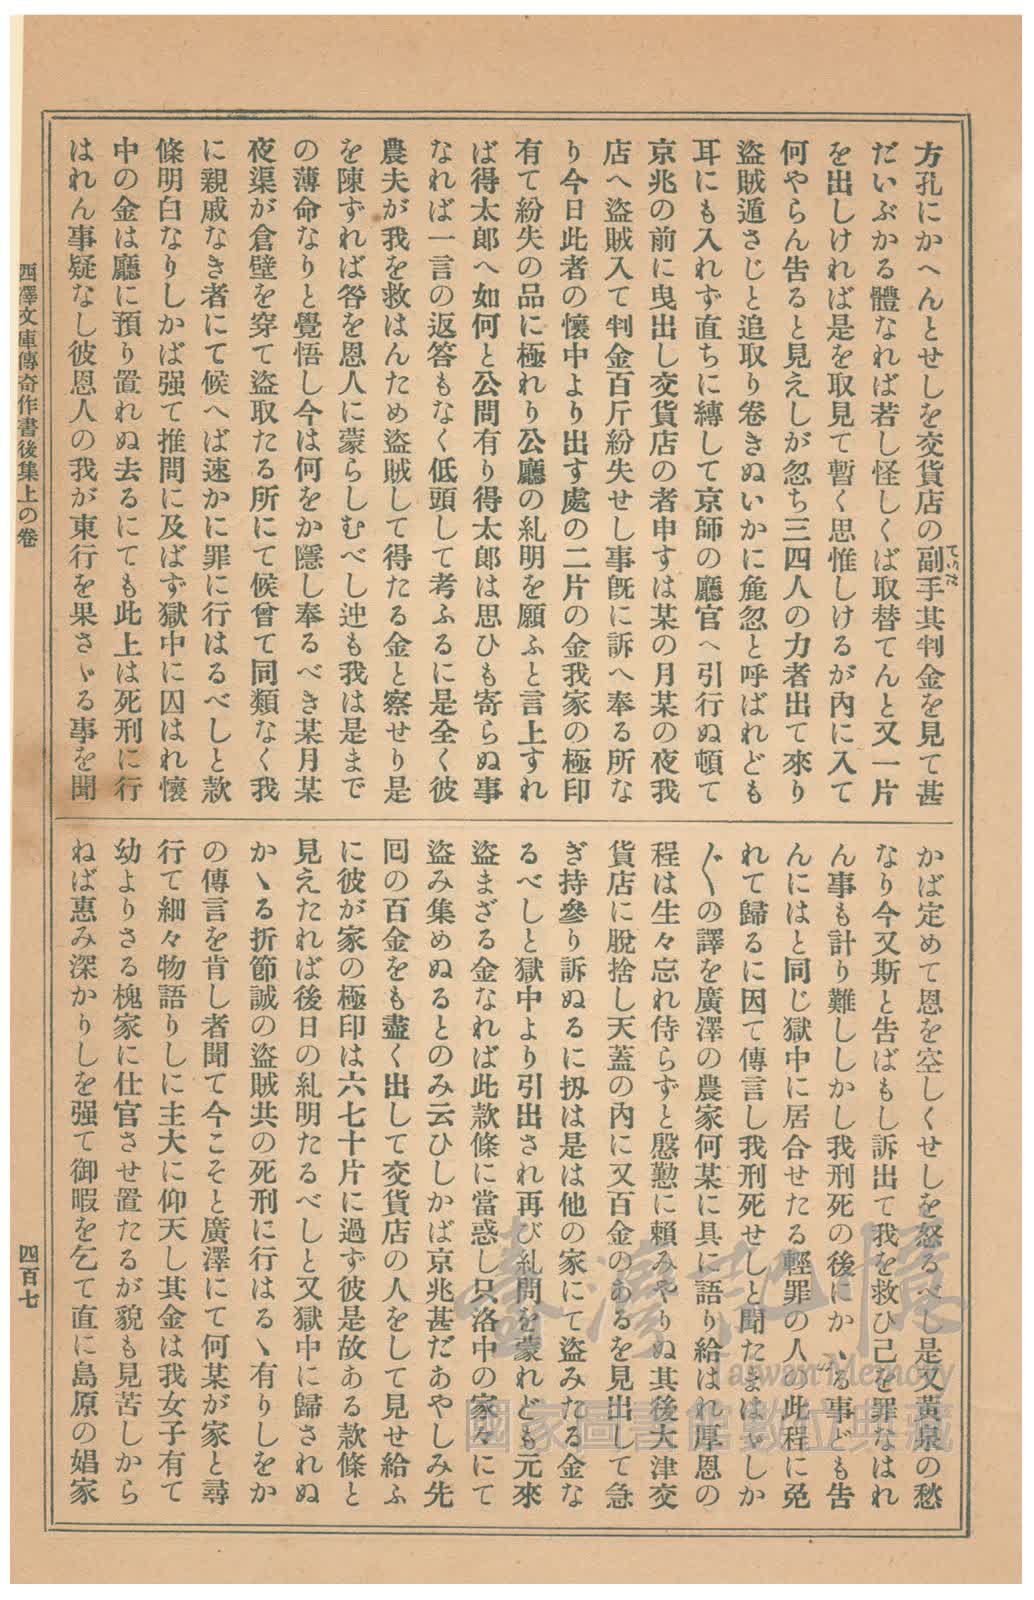 方孔にかへんとせしを交貨店の副手其判金を見て甚
だいぶかる體なれば若し怪しくば取替てんと又一片
を出しければ是を取見て暫く思惟しけるが內に入て
何やらん吿ると見えしが忽ち三四人の力者出て來り
盜賊遁さじと追取り卷きぬいかに麁忽と呼ばれども
耳にも入れず直ちに縛して京師の廳官へ引行ぬ頓て
京兆の前に曳出し交貨店の者申すは某の月某の夜我
店へ盜賊入て判金百斤紛失せし事旣に訴へ奉る所な
り今日此者の懷中より出す處の二片の金我家の極印
有て紛失の品に極れり公廳の糺明を願ふと言上すれ
ば得太郞へ如何と公問有り得太郞は思ひも寄らぬ事
なれば一言の返答もなく低頭して考ふるに是全く彼
農夫が我を救はんため盜賊して得たる金と察せり是
を陳ずれば咎を恩人に蒙らしむべし迚も我は是まで
の薄命なりと覺悟し今は何をか隱し奉るべき某月某
夜渠が倉壁を穿て盜取たる所にて候曾て同類なく我
に親戚なき者にて候へば速かに罪に行はるべしと款
條明白なりしかば强て推問に及ばず獄中に囚はれ懷
中の金は廳に預り置れぬ去るにても此上は死刑に行
はれん事疑なし彼恩人の我が東行を果さゞる事を聞
かば定めて恩を空しくせしを怒るべし是又黃泉の愁
なり今又斯と吿ばもし訴出て我を救ひ己を罪なはれ
ん事も計り難ししかし我刑死の後にかゝる事ども吿
んにはと同じ獄中に居合せたる輕罪の人の此程に免
れて歸るに因て傳言し我刑死せしと聞たまはゞしか
〴〵の譯を廣澤の農家何某に具に語り給はれ厚恩の
程は生々忘れ侍らずと慇懃に賴みやりぬ其後大津交
貨店に脫捨し天蓋の內に又百金のあるを見出して急
ぎ持參り訴ぬるに扨は是は他の家にて盜みたる金な
るべしと獄中より引出され再び糺問を蒙れども元來
盜まざる金なれば此款條に當惑し只洛中の家々にて
盜み集めぬるとのみ云ひしかば京兆甚だあやしみ先
囘の百金をも盡く出して交貨店の人をして見せ給ふ
に彼が家の極印は六七十片に過ず彼是故ある款條と
見えたれば後日の糺明たるべしと又獄中に歸されぬ
かゝる折節誠の盜賊共の死刑に行はるゝ有りしをか
の傳言を肯し者聞て今こそと廣澤にて何某が家と尋
行て細々物語りしに主大に仰天し其金は我女子有て
幼よりさる槐家に仕官させ置たるが貌も見苦しから
ねば惠み深かりしを强て御暇を乞て直に島原の娼家
西澤文庫傳奇作書後集上の卷
四百七
臺灣記憶
Taiwan Memory
國家圖書館數位典藏